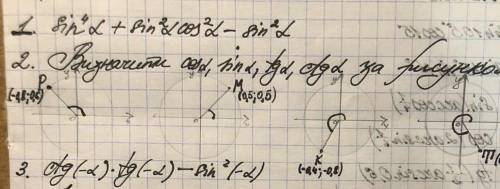 1. sin⁴α + sin²α cos²α − sin²α
2. Визначити cosα, sinα, tgα, ctgα за рисунком
P M
(-0,8; 0,6) (0,5; 0,5)
K
(-0,4; -0,8)
3. ctg(-α)·tg(-α) − sin²(-α)